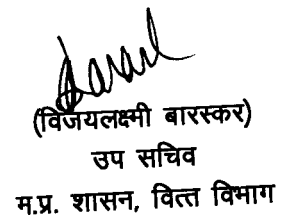 (विजयलक्ष्मी बारस्कर)
उप सचिव
म.प्र. शासन, वित्त विभाग